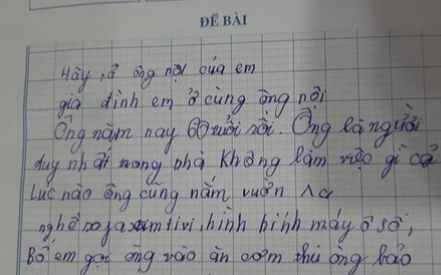 ĐỀ BÀI
Hãy tả ông nội của em
gia đình em ở cùng ông nội
Ông năm nay 60 tuổi rồi. Ông là người
duy nhất trong nhà không làm việc gì cả
lúc nào ông cũng nằm vườn
nghề xem tivi, hình hình máy ô số,
Bố em gọi ông vào ăn cơm thì ông bảo